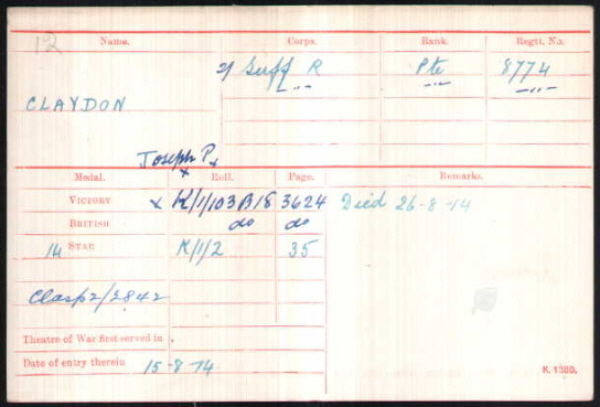 12
Name. Corps. Rank. Regtl. No.
2/ Suff R Pte 8774
" " "
CLAYDON
Joseph P. x
x
Medal. Roll. Page. Remarks.
VICTORY x K/1/103 B18 3624 Died 26-8-14
BRITISH do do
14 STAR K/1/2 35
Clasp 2/2842
Theatre of War first served in
Date of entry therein 15-8-14
K. 1380.